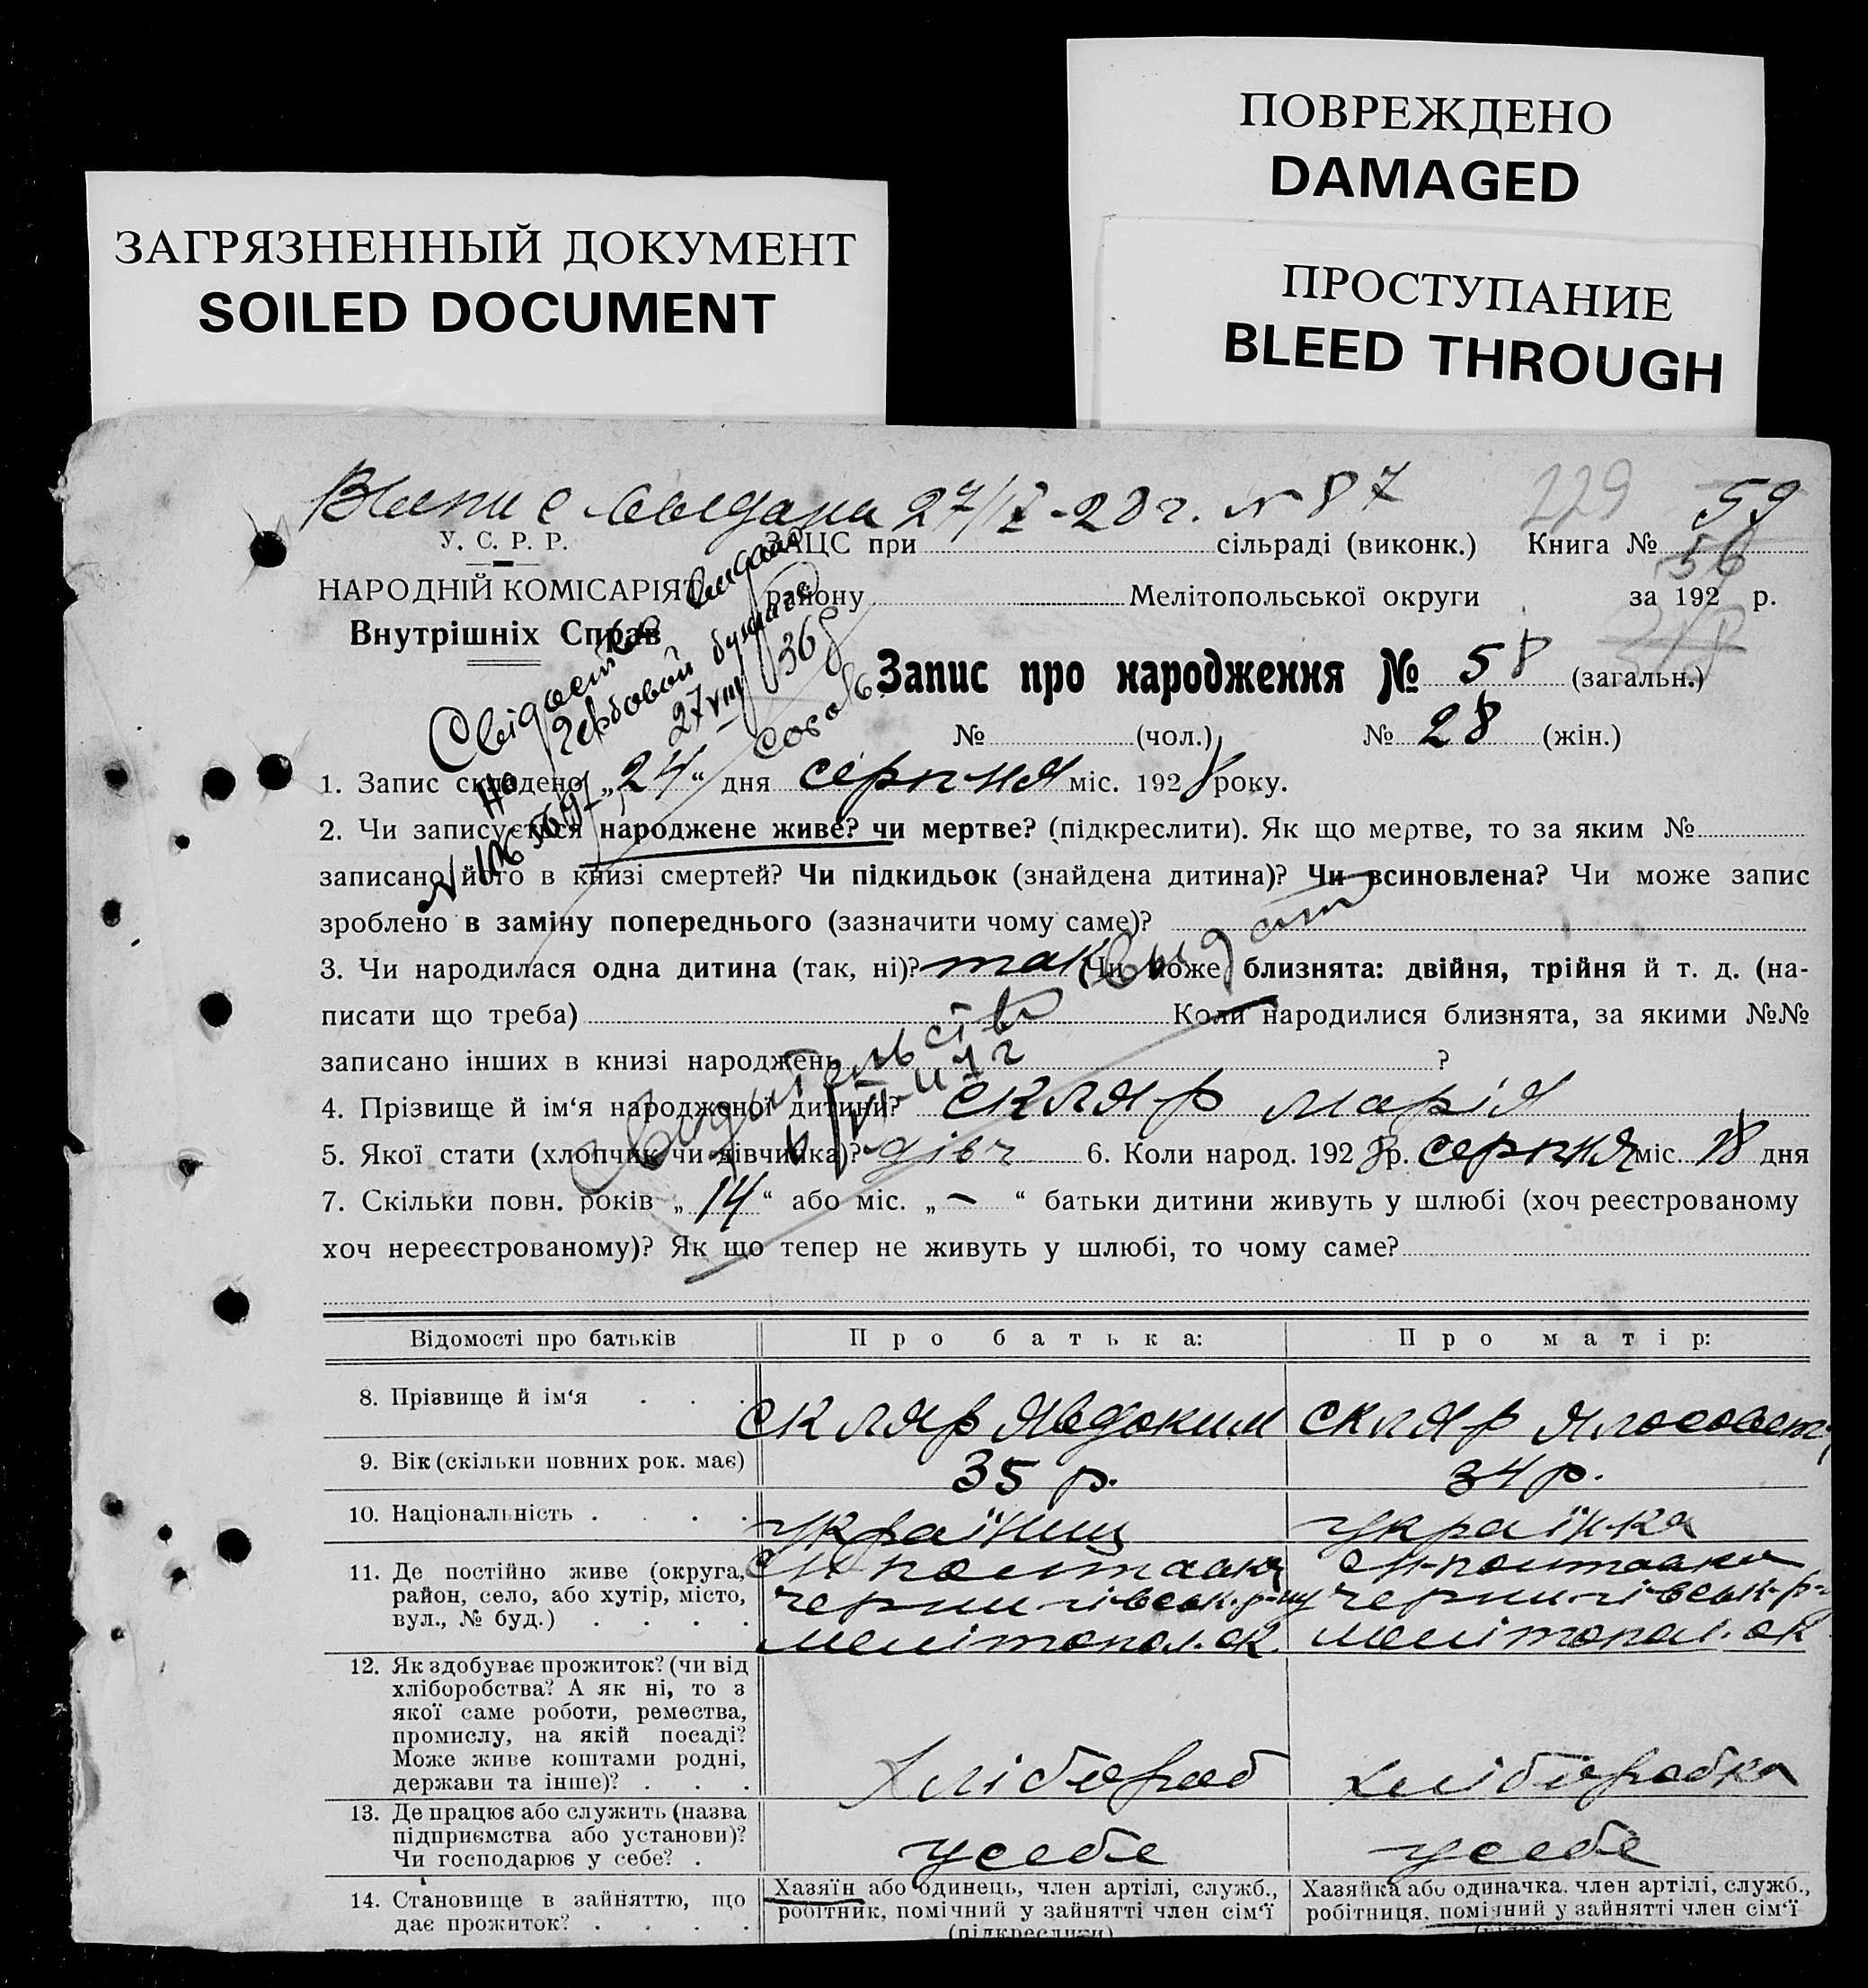 ПОВРЕЖДЕНО
DAMAGED
ЗАГРЯЗНЕННЫЙ ДОКУМЕНТ
SOILED DOCUMENT
ПРОСТУПАНИЕ
BLEED THROUGH
27/IX-28 г. № 87
229 59
У. С. Р. Р.
ЗАЦС при сільраді (виконк.) Книга № 56
НАРОДНІЙ КОМІСАРІЯТ
району Мелітопольської округи за 192 р.
Внутрішніх Справ
на гербовой бумаге
27/VIII 36
Запис про народження № 58 (загальн.)
№ (чол.) № 28 (жін.)
1. Запис складено „24“ дня серпня міс. 1928 року.
2. Чи записується народжене живе? чи мертве? (підкреслити). Як що мертве, то за яким №
записано його в книзі смертей? Чи підкидьок (знайдена дитина)? Чи всиновлена? Чи може запис
зроблено в заміну попереднього (зазначити чому саме)?
3. Чи народилася одна дитина (так, ні)? так (Чи може близнята: двійня, трійня й т. д. (на-
писати що треба) Коли народилися близнята, за якими №№
записано інших в книзі народжень ?
4. Прізвище й ім‘я народженої дитини? Скляр Марія
5. Якої стати (хлопчик чи дівчинка)? дівч 6. Коли народ. 1928 р. серпня міс. 18 дня
7. Скільки повн. років „14“ або міс. „—“ батьки дитини живуть у шлюбі (хоч реєстрованому
хоч нереєстрованому)? Як що тепер не живуть у шлюбі, то чому саме?
Відомості про батьків
Про батька:
Про матір:
8. Прізвище й ім‘я
Скляр Явдоким
Скляр
9. Вік (скільки повних рок. має)
35 р.
34 р.
10. Національність
українец
українка
11. Де постійно живе (округа,
район, село, або хутір, місто,
вул., № буд.)
чернигівськ. р-ну
мелітопол. ок.
чернигівськ. р-
мелітопол. ок
12. Як здобуває прожиток? (чи від
хліборобства? А як ні, то з
якої саме роботи, ремества,
промислу, на якій посаді?
Може живе коштами родні,
держави та інше)?
Хлібороб
хліборобка
13. Де працює або служить (назва
підприємства або установи)?
Чи господарює у себе?
усебе
усебе
14. Становище в зайняттю, що
дає прожиток?
Хазяїн або одинець, член артілі, служб.,
робітник, помічний у зайнятті член сім‘ї
(підкреслити)
Хазяйка або одиначка. член артілі, служб.,
робітниця. помічний у зайнятті член сім‘ї